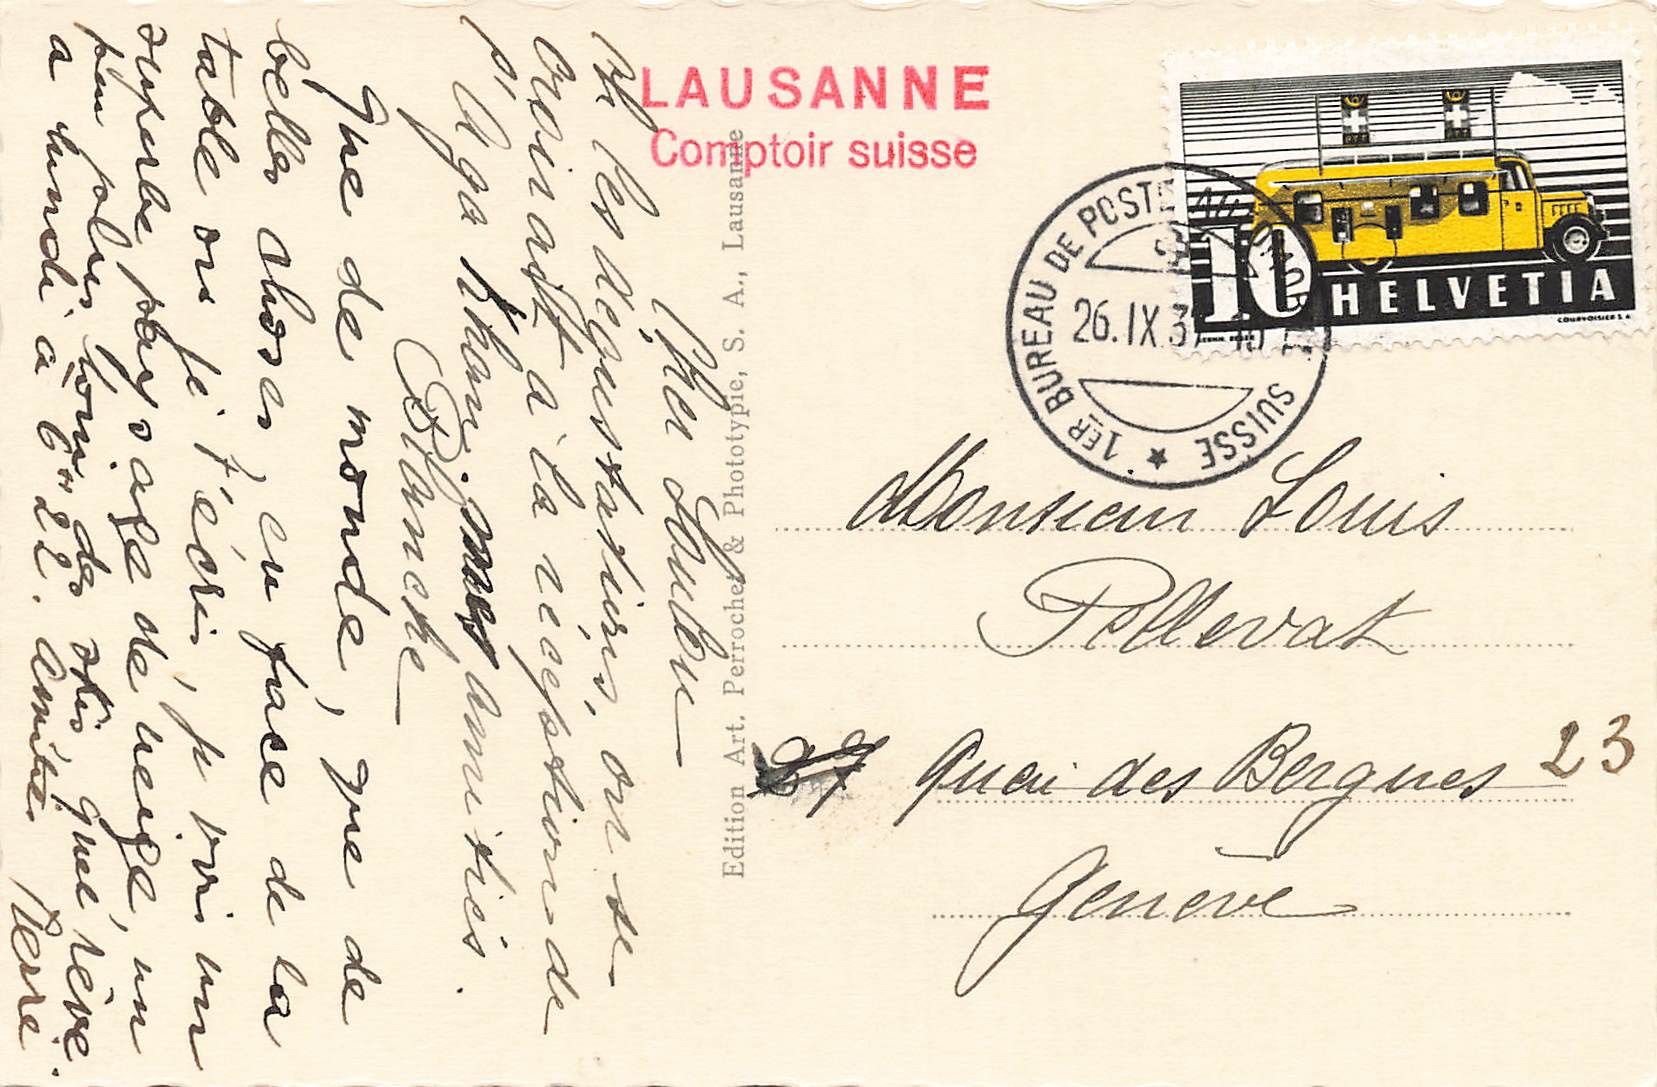 LAUSANNE
Comptoir suisse
HELVETIA
10
COURVOISIER S.A.
1ER BUREAU DE POSTE AU
SUISSE
26.IX.3
Cher Loulou
Oh les dégustations, on se
croirait à la réception de
s'
amitiés.
Blanche
Que de monde, que de
belles choses, en face de la
table où je t'écris, je vois un
superbe paysage de neige, un
peu plus loin des skis quel rêve.
a lundi à 6 22. Amitiés Pierre
Edition Art. Perrochet & Phototypie, S. A., Lausanne
Monsieur Louis
Pellevat
27 Quai des Bergues 23
Genève